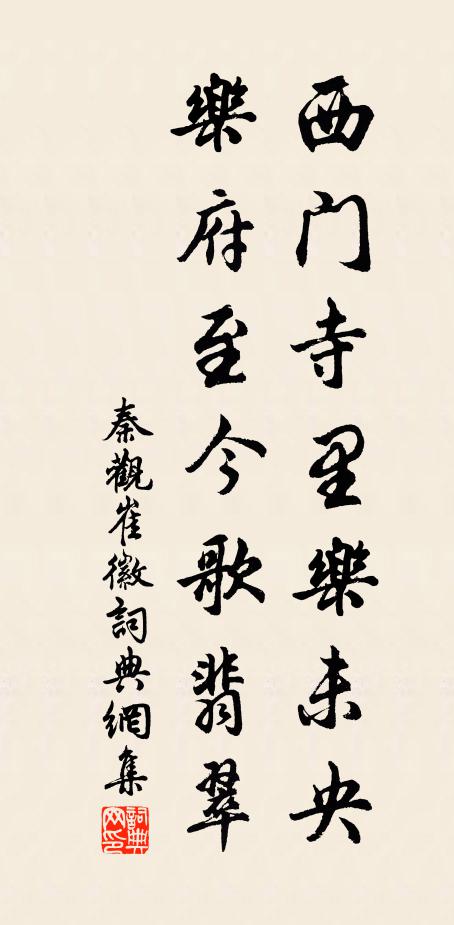 西门寺里樂未央
樂府至今歌翡翠
秦觀崔徽詞典網集
詞典網印